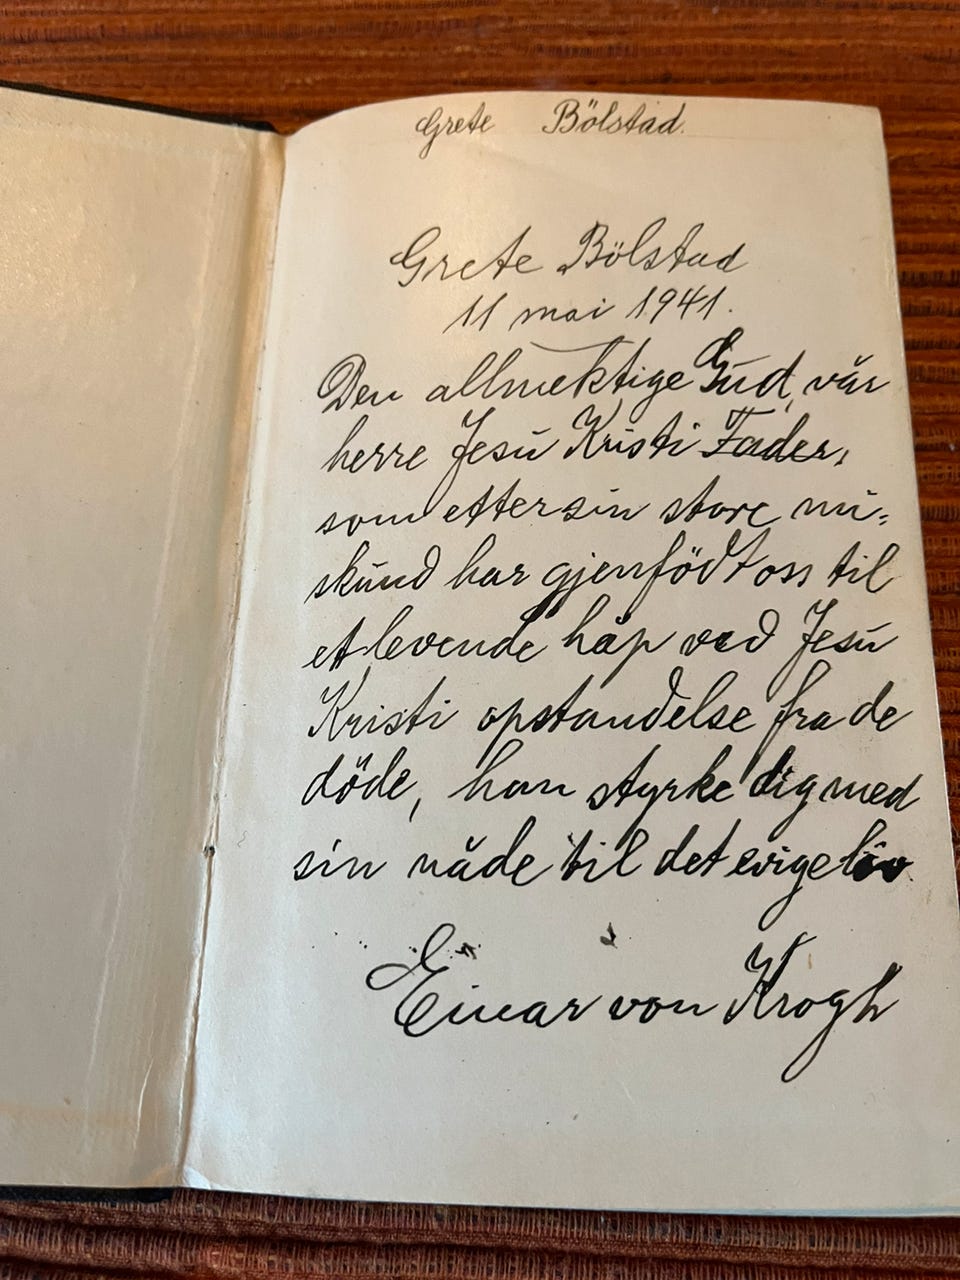 Grete Bölstad.
Grete Bölstad
11 mai 1941.
Den allmektige Gud, vår
herre Jesu Kristi Fader,
som etter sin store mi=
skund har gjenfödt oss til
et levende håp ved Jesu
Kristi opstandelse fra de
döde, han styrke dig med
sin nåde til det evige liv
Einar von Krogh